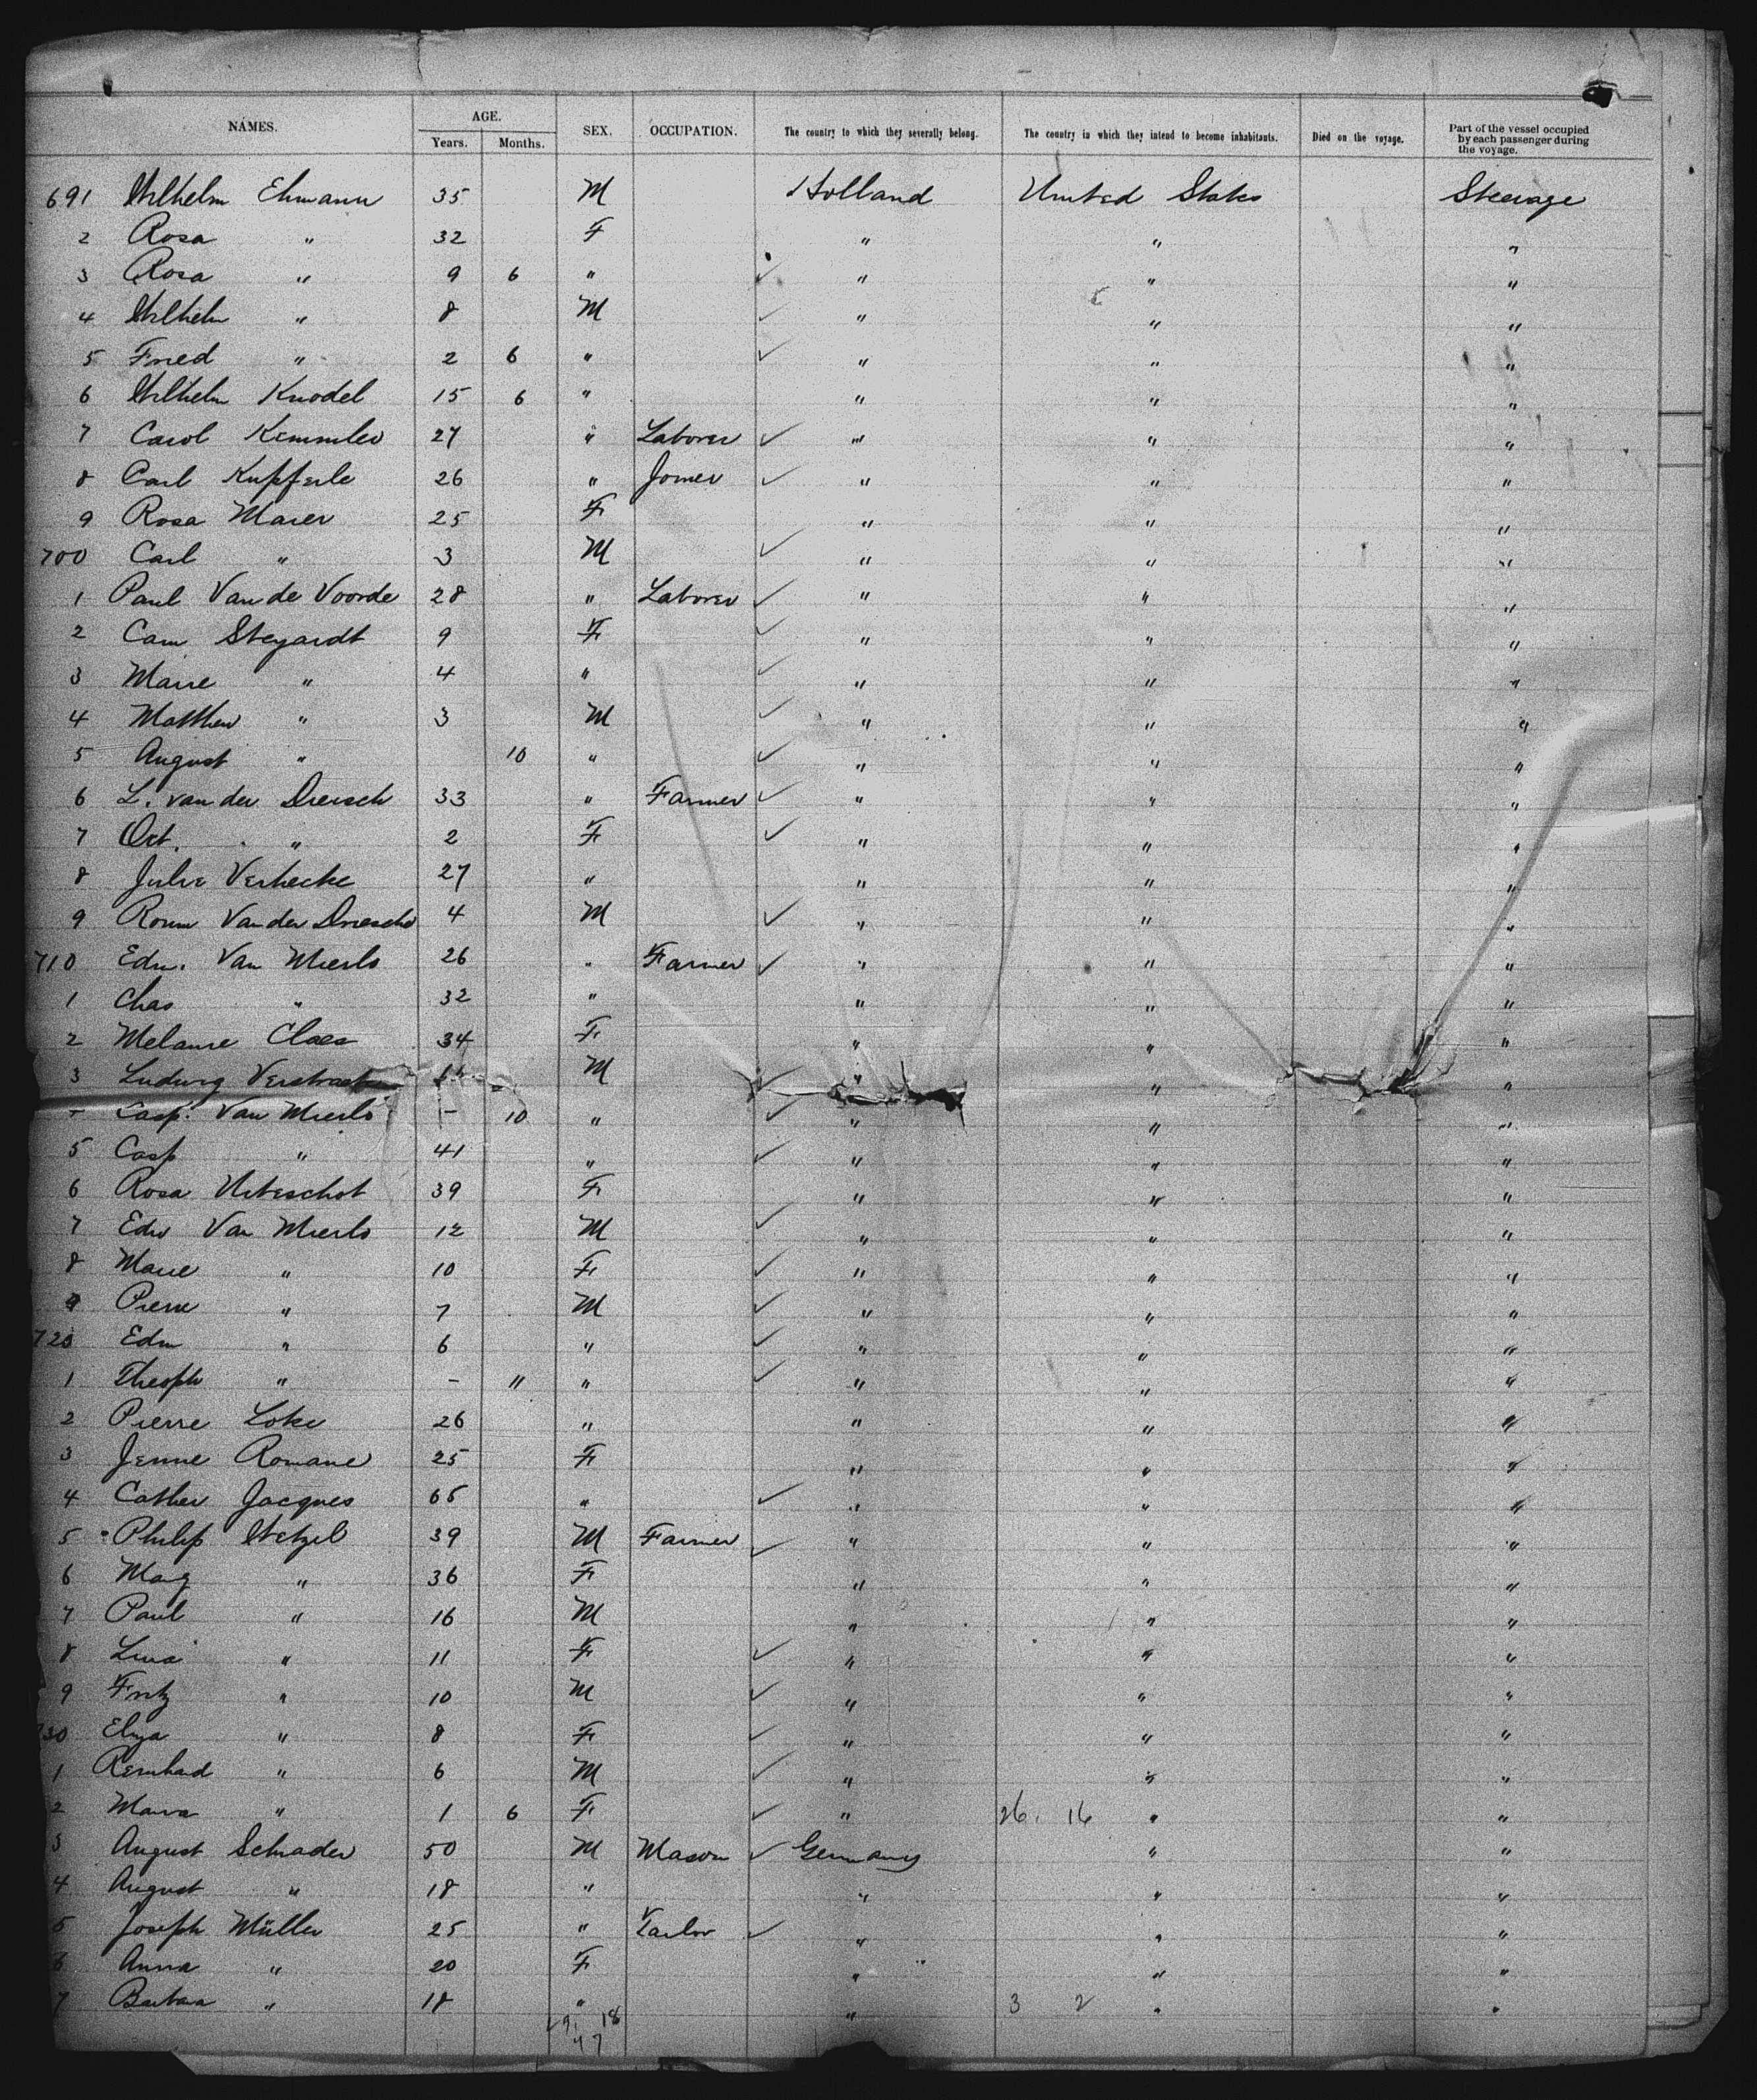 NAMES. AGE. SEX. OCCUPATION. The country to which they severally belong. The country in which they intend to become inhabitants. Died on the voyage. Part of the vessel occupied by each passenger during the voyage.
Years. Months.
691 Wilhelm Ehmann 35 M Holland United States Steerage
2 Rosa " 32 F " " "
3 Rosa " 9 6 " " " "
4 Wilhelm " 8 M " " "
5 Fried " 2 6 " " " "
6 Wilhelm Knodel 15 6 " " " "
7 Carol Kemmler 27 " Laborer " " "
8 Carl Kupferle 26 " Joiner " " "
9 Rosa Maier 25 F " " "
700 Carl " 3 M " " "
1 Paul Van de Voorde 28 " Laborer " " "
2 Cam Steyardt 9 F " " "
3 Marie " 4 " " " "
4 Matthew " 3 M " " "
5 August " 10 " " " "
6 L. van der Driesch 33 " Farmer " " "
7 Oct. " 2 F " " "
8 Julie Verhecke 27 " " " "
9 Van der Driesche 4 M " " "
710 Edw. Van Mierlo 26 " Farmer " " "
1 Chas " 32 " " " "
2 Melanie Claes 34 F " " "
3 Ludwig M " " "
Casp. Van Mierlo - 10 " " " "
5 Casp " 41 " " " "
6 Rosa 39 F " " "
7 Edw Van Mierlo 12 M " " "
8 Marie " 10 F " " "
9 Pierre " 7 M " " "
720 Edw " 6 " " " "
1 Theoph " - 11 " " " "
2 Pierre Loke 26 " " " "
3 Jenne Romane 25 F " " "
4 Cather Jacques 65 " " " "
5 Philip Wetzel 39 M Farmer " " "
6 Marg " 36 F " " "
7 Paul " 16 M " " "
8 Lina " 11 F " " "
9 Fritz " 10 M " " "
730 Eliza " 8 F " " "
1 Reinhard " 6 M " " "
2 Maria " 1 6 F " 26. 16 " "
3 August Schrader 50 M Mason Germany " "
4 August " 18 " " " "
5 Joseph Müller 25 " Tailor " " "
6 Anna " 20 F " " "
7 Barbara " 18 " " 3 2 " "
29. 18
47